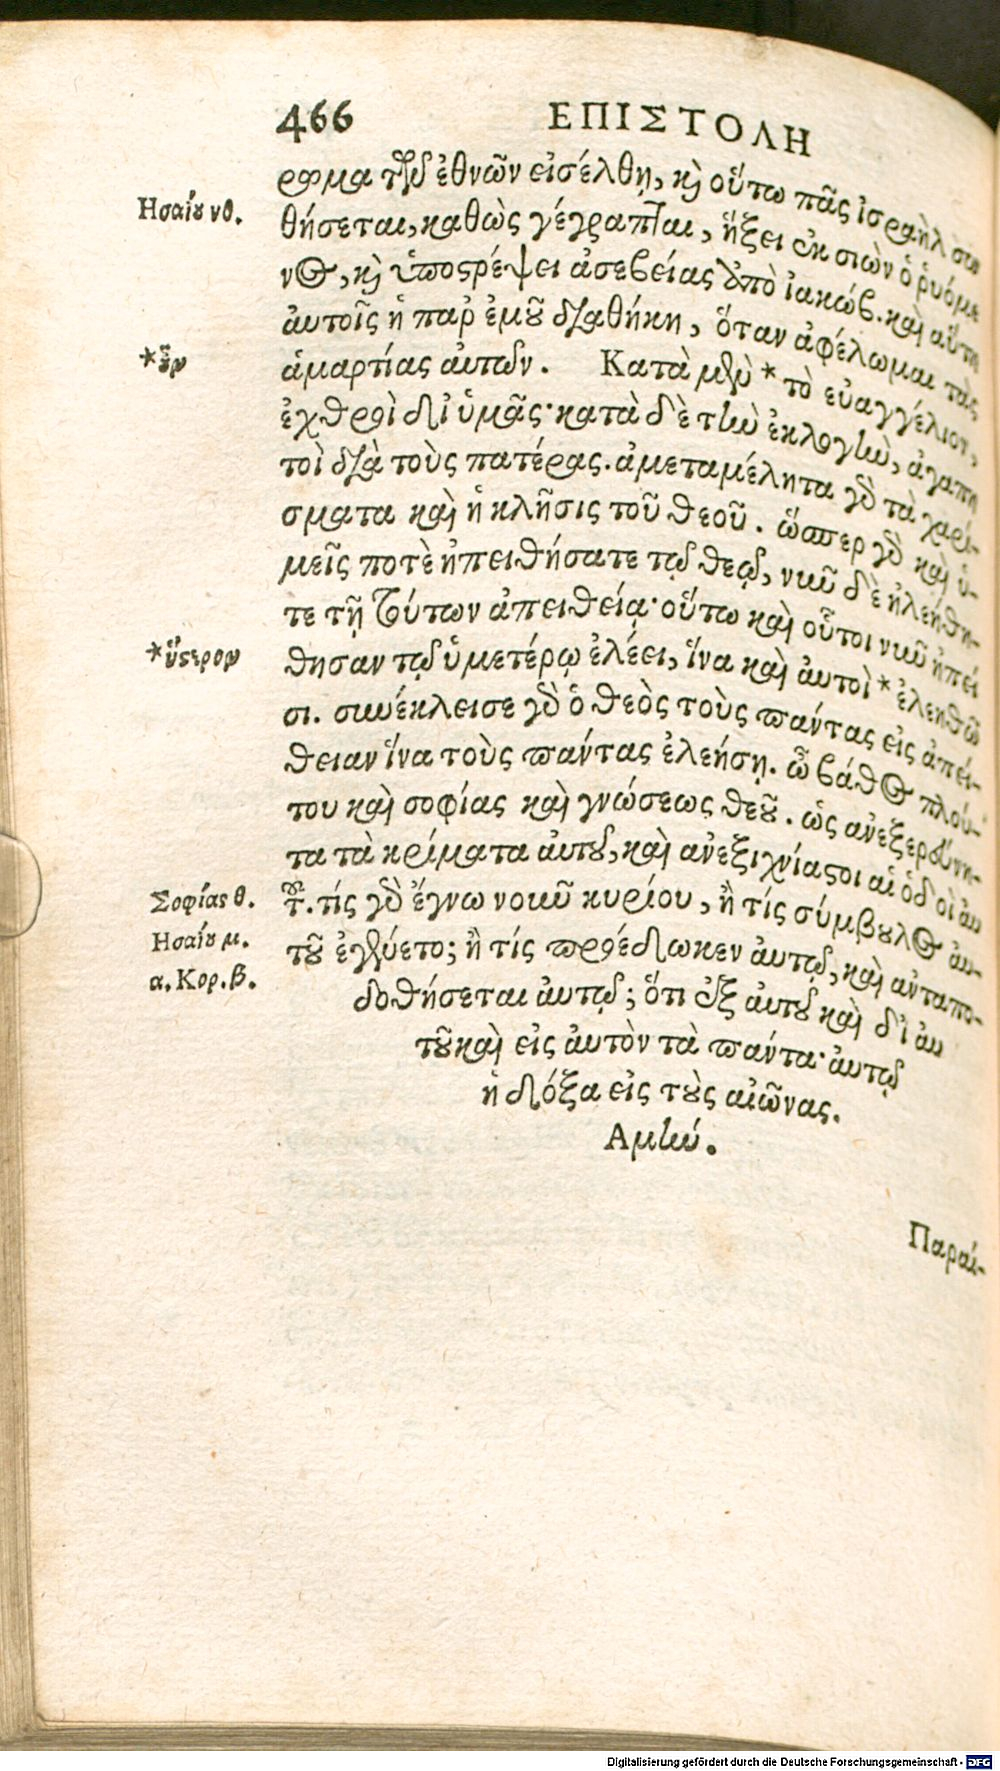 466 ΕΠΙΣΤΟΛΗ
ρωμα τῶν ἐθνῶν εἰσέλθῃ, κὶ οὕτω πᾶς ἰσραὴλ σω
Ησαΐου νθ.
θήσεται, καθὼς γέγραπται, ἥξει ἐκ σιὼν ὁ ῥυόμε
νος, κὶ ἀποστρέψει ἀσεβείας ἀπὸ ἰακώβ. καὶ αὕτη
ἀυτοῖς ἡ παρ ἐμοῦ διαθήκη, ὅταν ἀφέλωμαι τὰς
*οὖν
ἁμαρτίας ἀυτῶν. Κατὰ μὲν * τὸ εὐαγγέλιον,
ἐχθροὶ δι ὑμᾶς· κατὰ δὲ τὴν ἐκλογὴν, ἀγαπη
τοὶ διὰ τοὺς πατέρας. ἀμεταμέλητα γὸ τὰ χαρί-
σματα καὶ ἡ κλῆσις τοῦ θεοῦ. ὥσπερ γὸ καὶ ὑ-
μεῖς ποτὲ ἠπειθήσατε τῷ θεῷ, νῦν δὲ ἠλεήθη-
τε τῇ τούτων ἀπειθείᾳ· οὕτω καὶ οὗτοι νῦν ἠπεί
*ὕστερον
θησαν τῷ ὑμετέρῳ ἐλέει, ἵνα καὶ ἀυτοὶ * ἐλεηθῶ
σι. συνέκλεισε γὸ ὁ θεὸς τοὺς πάντας εἰς ἀπεί-
θειαν ἵνα τοὺς πάντας ἐλεήσῃ. ὦ βάθος πλού-
του καὶ σοφίας καὶ γνώσεως θεοῦ. ὡς ἀνεξερεύνη-
τα τὰ κρίματα ἀυτοῦ, καὶ ἀνεξιχνίαστοι αἱ ὁδοὶ ἀυ
Σοφίας θ.
τοῦ. τίς γὸ ἔγνω νοῦν κυρίου, ἢ τίς σύμβουλος ἀυ-
Ησαΐου μ.
τοῦ ἐγένετο; ἢ τίς προέδωκεν ἀυτῷ, καὶ ἀνταπο-
α. Κορ. β.
δοθήσεται ἀυτῷ; ὅτι ἐξ ἀυτοῦ καὶ δι ἀυ
τοῦ καὶ εἰς ἀυτὸν τὰ πάντα· ἀυτῷ
ἡ δόξα εἰς τοὺς αἰῶνας.
Αμήν.
Παραί-
Digitalisierung gefördert durch die Deutsche Forschungsgemeinschaft - DFG